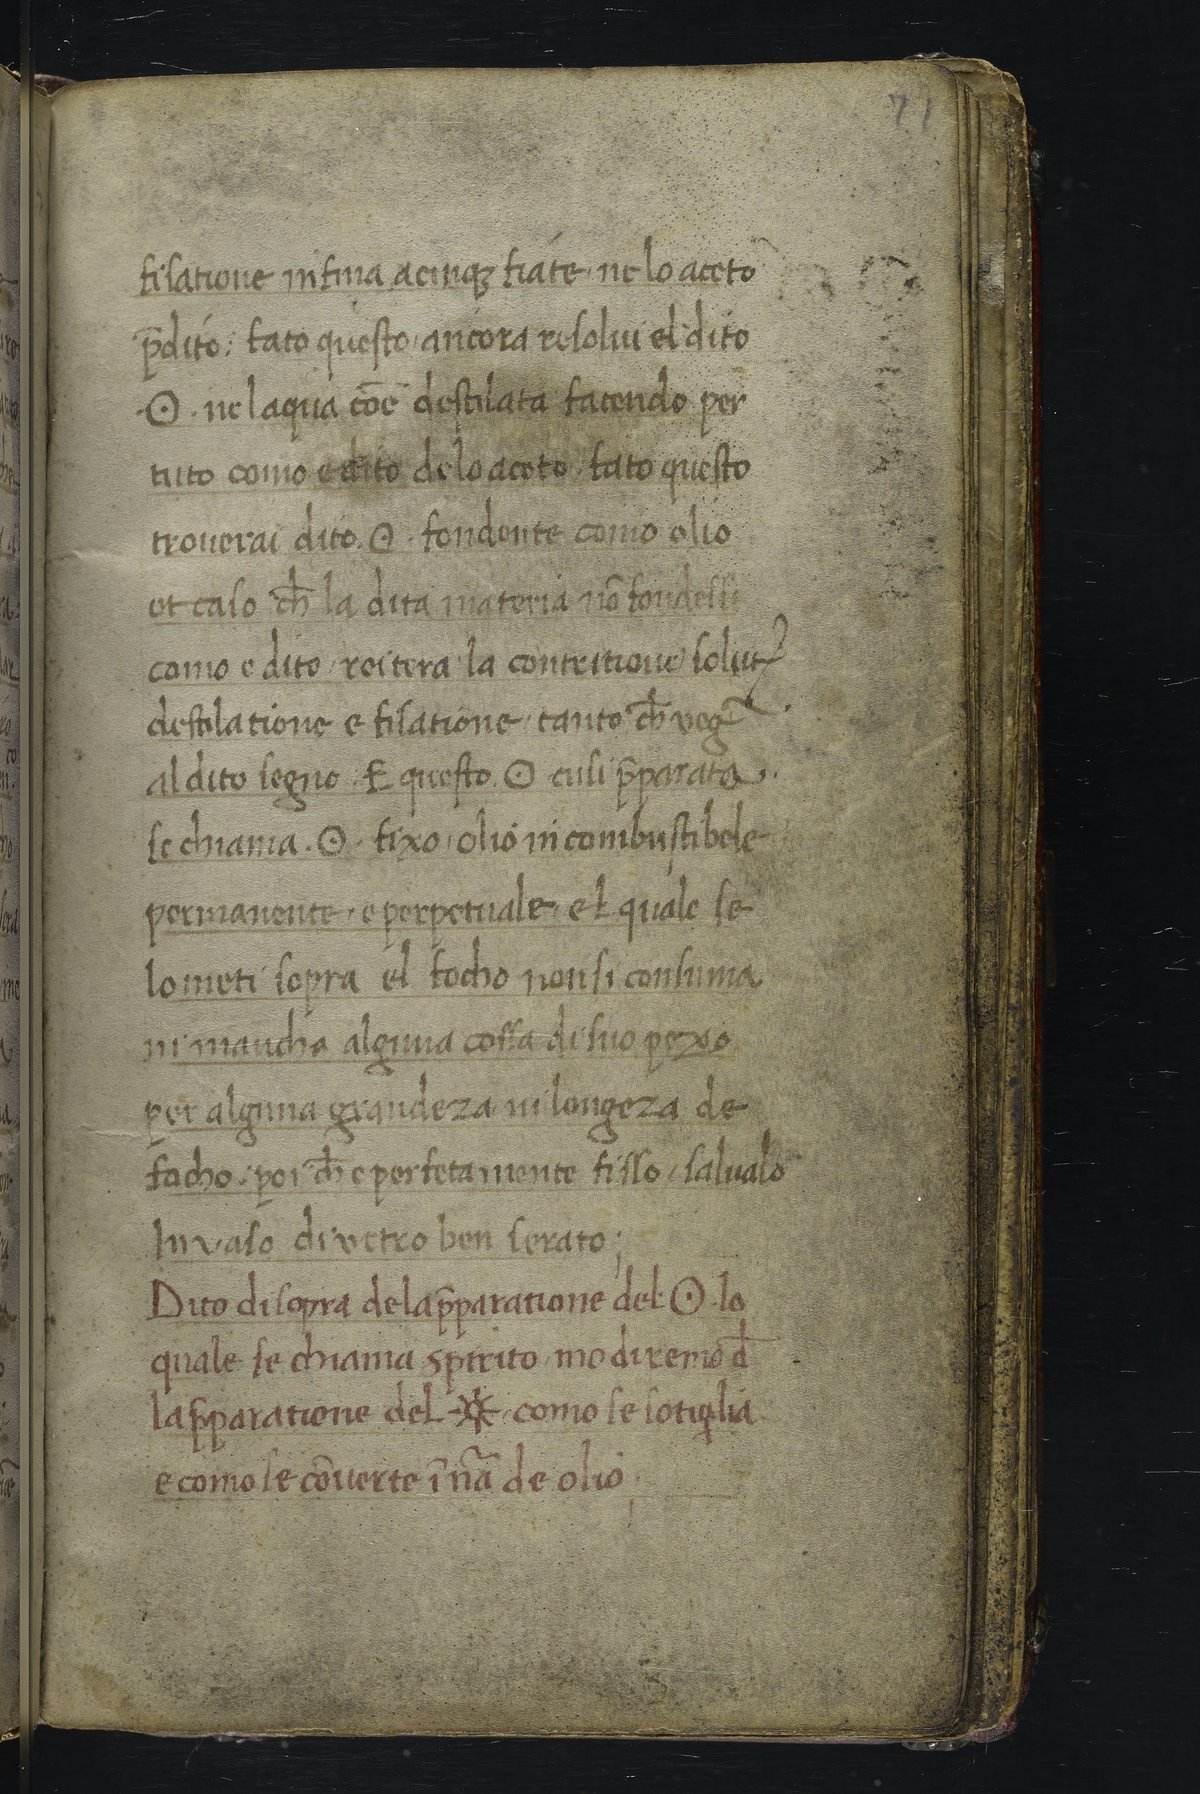 71
fisatione infina a cinqꝫ fiate ne lo aceto
p̄dito; fato questo ancora resolvi el dito
☉ · ne laqua cōe destilata facendo per
tuto como e dito de lo aceto fato questo
troverai dito ☉ · fondente como olio
et caso ch̄ la dita materia nō fondessi
como e dito reitera la contritione solut
destilatione e fisatione tanto ch̄ veg
al dito segno · E questo ☉ cusi p̄parata
se chiama · ☉ · fixo olio incombustibele
permanente e perpetuale el quale se
lo meti sopra el focho non si consuma
ni mancha alguna cossa di suo pexo
per alguna grandeza ni longeza de
focho · poi ch̄ e perfetamente fisso salvalo
In vaso di vetro ben serato;
Dito di sopra de la p̄paratione del ☉ lo
quale se chiama spirito mo diremo d̄
la p̄paratione del ☼ como se sotiglia
e como se cōverte ī n̄a de olio